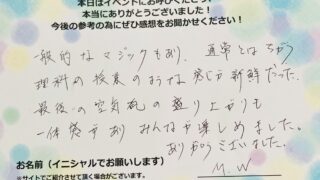 本日はイベントにお呼びくださり、
本当にありがとうございました！
今後の参考の為にぜひ感想をお聞かせください！
一般的なマジックもあり、通常とはちがう
理科の授業のような感じが新鮮だった。
最後の空気砲の盛り上がりも
一体感がありみんなが楽しめました。
ありがとうございました。
お名前（イニシャルでお願いします） M.W
※サイトでご紹介させて頂く場合がございます。